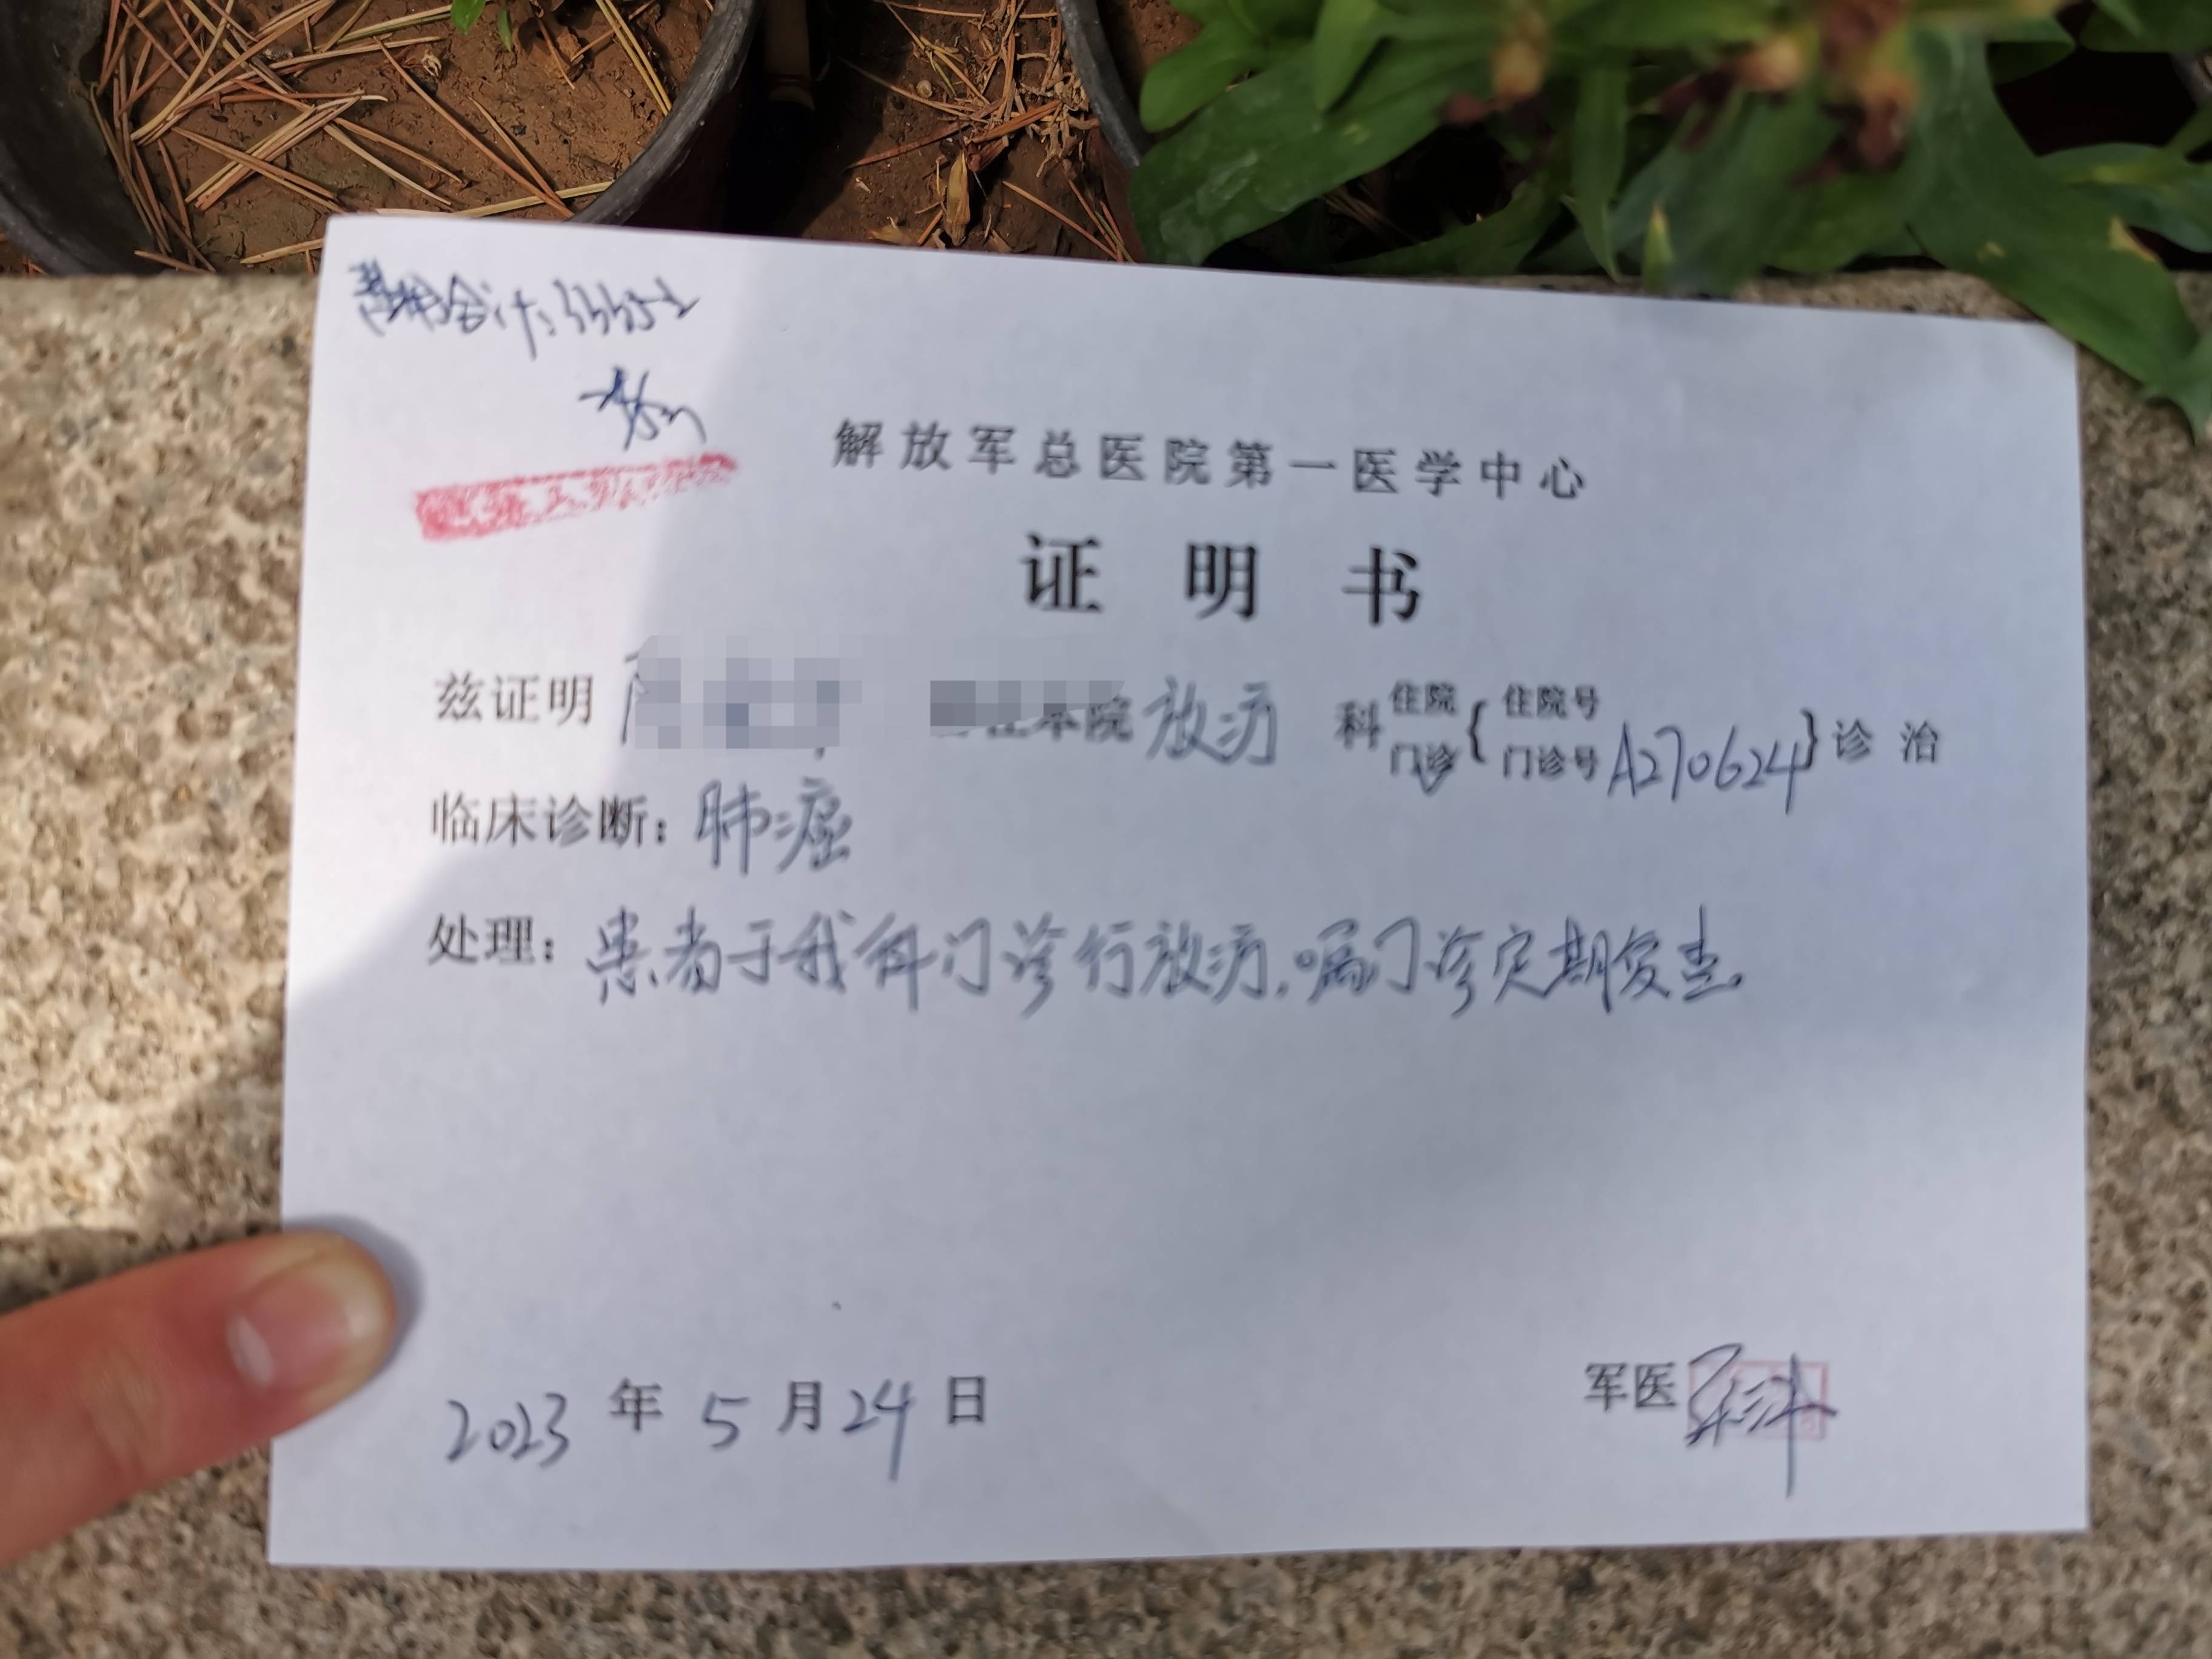 解放军总医院第一医学中心
证明书
兹证明 本院放疗 科 住院 门诊 { 住院号 门诊号 A270624 } 诊治
临床诊断：肺癌
处理：患者于我科门诊行放疗，嘱门诊定期复查。
2023 年 5 月 24 日
军医